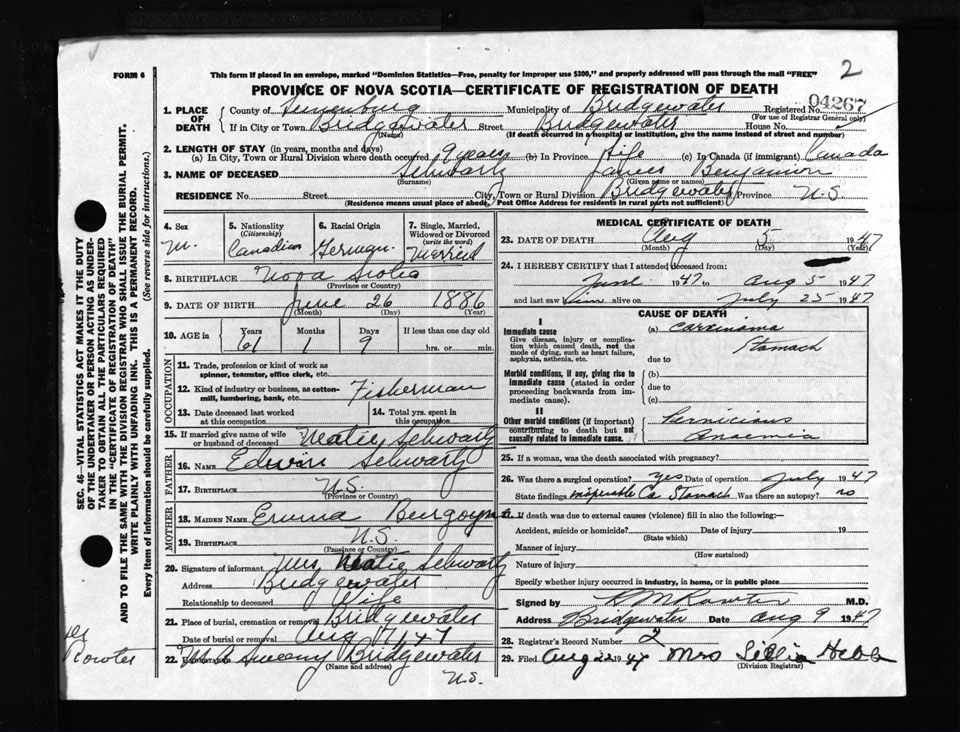 FORM 6
This form if placed in an envelope, marked "Dominion Statistics—Free, penalty for improper use $300," and properly addressed will pass through the mail "FREE"
2
PROVINCE OF NOVA SCOTIA—CERTIFICATE OF REGISTRATION OF DEATH
04267
1. PLACE OF DEATH
County of Lunenburg Municipality of Bridgewater Registered No.
(For use of Registrar General only)
If in City or Town Bridgewater Street Bridgewater House No.
(Name) (If death occurred in a hospital or institution, give the name instead of street and number)
2. LENGTH OF STAY (in years, months and days)
(a) In City, Town or Rural Division where death occurred 9 years (b) In Province Life (c) In Canada (if immigrant) Canada
3. NAME OF DECEASED Schwartz James Benjamin
(Surname) (Given name or names)
RESIDENCE No. Street City, Town or Rural Division Bridgewater Province N.S.
(Residence means usual place of abode. Post Office Address for residents in rural parts not sufficient)
4. Sex
M.
5. Nationality
(Citizenship)
Canadian
6. Racial Origin
German.
7. Single, Married, Widowed or Divorced
(write the word)
Married
8. BIRTHPLACE Nova Scotia
(Province or Country)
9. DATE OF BIRTH June 26 1886
(Month) (Day) (Year)
10. AGE in
Years Months Days If less than one day old
61 1 9 hrs. or min.
OCCUPATION
11. Trade, profession or kind of work as
spinner, teamster, office clerk, etc.
12. Kind of industry or business, as cotton-
mill, lumbering, bank, etc.
Fisherman
13. Date deceased last worked
at this occupation
14. Total yrs. spent in
this occupation
15. If married give name of wife
or husband of deceased Matie Schwartz
FATHER
16. NAME Edwin Schwartz
17. BIRTHPLACE N.S.
(Province or Country)
MOTHER
18. MAIDEN NAME Emma Burgoyne
19. BIRTHPLACE N.S.
(Province or Country)
20. Signature of informant Mrs Matie Schwartz
Address Bridgewater
Relationship to deceased Wife
21. Place of burial, cremation or removal Bridgewater
Date of burial or removal Aug 7/47
22. W A Sweeny Bridgewater
(Name and address)
N.S.
MEDICAL CERTIFICATE OF DEATH
23. DATE OF DEATH Aug 5 1947
(Month) (Day) (Year)
24. I HEREBY CERTIFY that I attended deceased from:
June 1947 to Aug 5 1947
and last saw him alive on July 25 1947
CAUSE OF DEATH
I
Immediate cause
Give disease, injury or complica-
tion which caused death, not the
mode of dying, such as heart failure,
asphyxia, asthenia, etc.
(a) Carcinoma
Stomach
due to
Morbid conditions, if any, giving rise to
immediate cause (stated in order
proceeding backwards from im-
mediate cause).
(b)
due to
(c)
II
Other morbid conditions (if important)
contributing to death but not
causally related to immediate cause.
Pernicious
Anaemia
25. If a woman, was the death associated with pregnancy?
26. Was there a surgical operation? yes Date of operation July 1947
State findings inoperable Ca. Stomach Was there an autopsy? no
27. If death was due to external causes (violence) fill in also the following:—
Accident, suicide or homicide? Date of injury 19
(State which)
Manner of injury
(How sustained)
Nature of injury
Specify whether injury occurred in industry, in home, or in public place
Signed by R M Rowter M.D.
Address Bridgewater Date Aug 9 1947
28. Registrar's Record Number 2
29. Filed Aug 22 1947 Mrs Lillia Hebb
(Division Registrar)
SEC. 46—VITAL STATISTICS ACT MAKES IT THE DUTY
OF THE UNDERTAKER OR PERSON ACTING AS UNDER-
TAKER TO OBTAIN ALL THE PARTICULARS REQUIRED
IN THE "CERTIFICATE OF REGISTRATION OF DEATH"
AND TO FILE THE SAME WITH THE DIVISION REGISTRAR WHO SHALL ISSUE THE BURIAL PERMIT.
WRITE PLAINLY WITH UNFADING INK. THIS IS A PERMANENT RECORD.
Every item of information should be carefully supplied. (See reverse side for instructions.)
Dr
Rowter